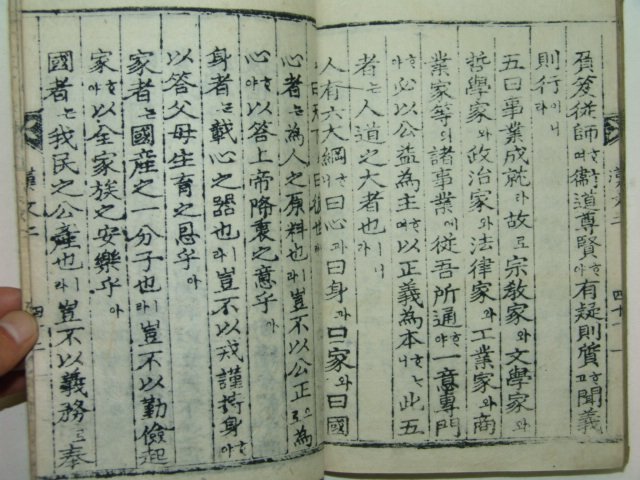 負笈從師ᄒᆞ여衛道尊賢ᄒᆞ야有疑則質ᄒᆞ고聞義
則行이니라
五曰事業成就라故로宗敎家와文學家와
哲學家와政治家와法律家와工業家와商
業家等의諸事業에從吾所通ᄒᆞ야一意專門
ᄒᆞ야必以公益為主ᄒᆞ며以正義為本ᄒᆞᄂᆞ니此五
者ᄂᆞᆫ人道之大者也ㅣ니라
人有六大綱ᄒᆞ니曰心과曰身과曰家와曰國
曰天下
心者ᄂᆞᆫ為人之原料也ㅣ라豈不以公正으로為
心ᄒᆞ야以答上帝降衷之意乎아
身者ᄂᆞᆫ載心之器也ㅣ라豈不以戒謹持身ᄒᆞ야
以答父母生育之恩乎아
家者ᄂᆞᆫ國産之一分子也ㅣ라豈不以勤儉起
家ᄒᆞ야以全家族之安樂乎아
國者ᄂᆞᆫ我民之公産也ㅣ라豈不以義務로奉
漢文二